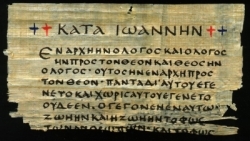 ΚΑΤΑ ΙΩΑΝΝΗΝ
ΕΝΑΡΧΗΗΝΟΛΟΓΟϹΚΑΙΟΛΟΓΟϹ
ΗΝΠΡΟϹΤΟΝΘΕΟΝΚΑΙΘΕΟϹΗΝ
ΟΛΟΓΟϹ·ΟΥΤΟϹΗΝΕΝΑΡΧΗΠΡΟϹ
ΤΟΝΘΕΟΝ·ΠΑΝΤΑΔΙΑΥΤΟΥΕΓΕ
ΝΕΤΟΚΑΙΧΩΡΙϹΑΥΤΟΥΕΓΕΝΕΤΟ
ΟΥΔΕΕΝ·ΟΓΕΓΟΝΕΝΕΝΑΥΤΩ
ΖΩΗΗΝΚΑΙΗΖΩΗΗΝΤΟΦΩϹ